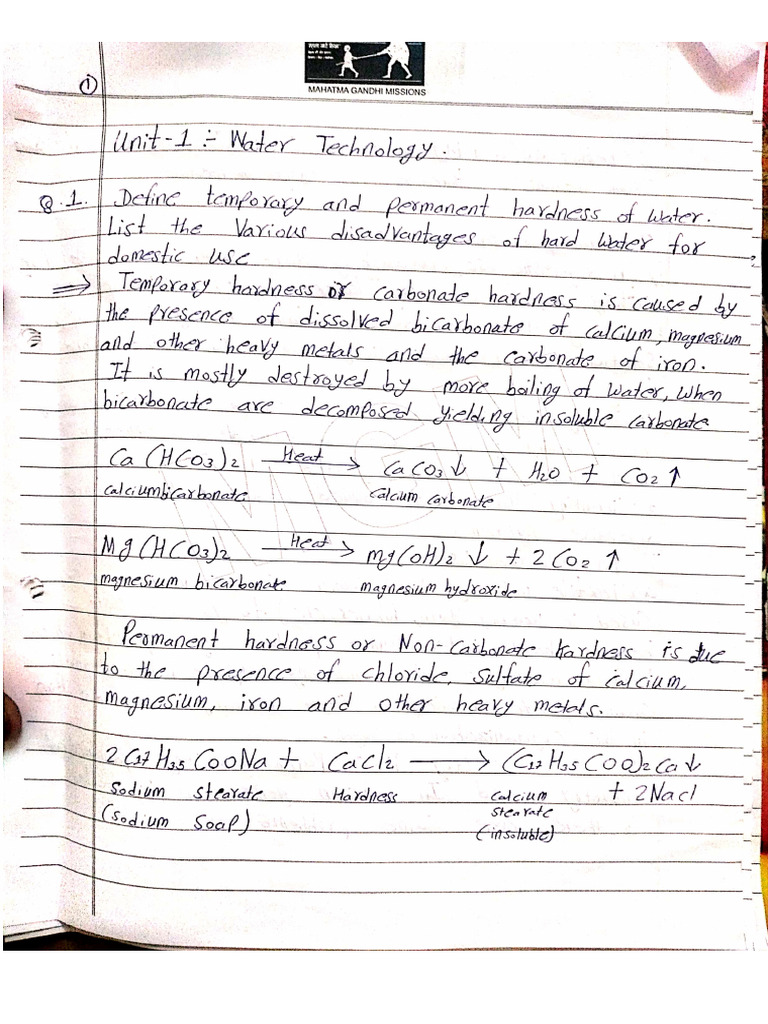 MAHATMA GANDHI MISSIONS
①
Unit-1 :- Water Technology.
Q.1. Define temporary and permanent hardness of water.
List the various disadvantages of hard water for
domestic use
⇒ Temporary hardness or carbonate hardness is caused by
the presence of dissolved bicarbonate of calcium, magnesium
and other heavy metals and the carbonate of iron.
It is mostly destroyed by more boiling of water, when
bicarbonate are decomposed yielding insoluble carbonate
Ca (HCO3)2 —Heat→ CaCO3↓ + H2O + CO2↑
calciumbicarbonate calcium carbonate
Mg(HCO3)2 —Heat→ mg(OH)2 ↓ + 2CO2 ↑
magnesium bicarbonate magnesium hydroxide
Permanent hardness or Non-carbonate hardness is due
to the presence of chloride, sulfate of calcium,
magnesium, iron and other heavy metals.
2C17H35COONa + CaCl2 ⟶ (C17H35COO)2Ca↓
+ 2Nacl
Sodium stearate Hardness calcium
stearate
(sodium soap) (insoluble)
MGM